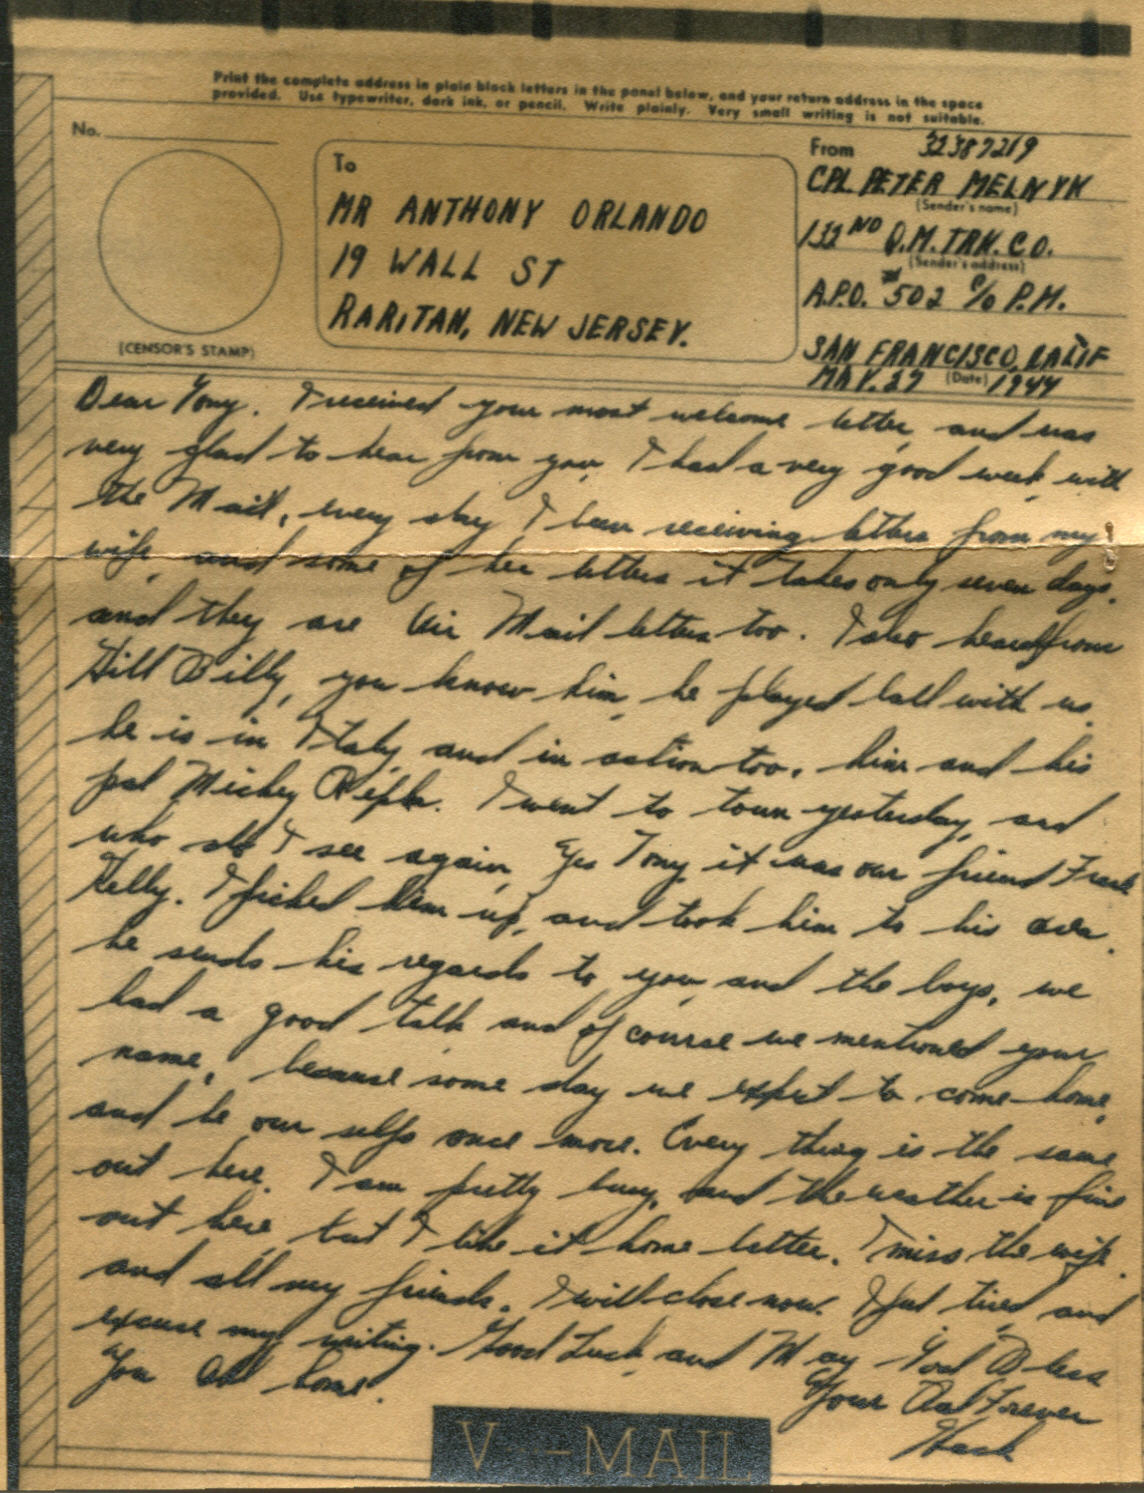 Print the complete address in plain block letters in the panel below, and your return address in the space
provided. Use typewriter, dark ink, or pencil. Write plainly. Very small writing is not suitable.
No.
(CENSOR'S STAMP)
To
MR ANTHONY ORLANDO
19 WALL ST
RARITAN, NEW JERSEY.
From 32387219
CPL PETER MELNYK
(Sender's name)
132 ND Q.M. TRK. CO.
(Sender's address)
A.P.O. #502 C/O P.M.
SAN FRANCISCO, CALIF
MAY. 27 (Date) 1944
Dear Tony. I received your most welcome letter, and was
very glad to hear from you, I had a very good week, with
the Mail, every day I been receiving letters from my
wife, and some of her letters it takes only seven days,
and they are Air Mail letters too. I also heard from
Hill Billy, you know him, he played ball with us,
he is in Italy, and in action too, him and his
pal Mickey. I went to town yesterday, and
who do I see again, Yes Tony it was our friend Frank
Kelly. I picked him up, and took him to his area,
he sends his regards to you, and the boys, we
had a good talk and of course we mentioned your
name, because some day we expect to come home,
and be our selfs once more. Every thing is the same
out here. I am pretty busy, and the weather is fine
out here, but I like it home better. I miss the wife,
and all my friends. I will close now. I feel tired, and
excuse my writing. Good Luck, and May God Bless
You All home.
Your Pal Forever
V--MAIL